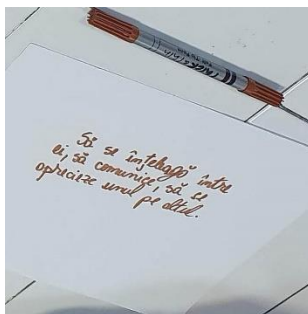 Să se înțeleagă între
ei, să comunice, să se
aprecieze unul pe altul.